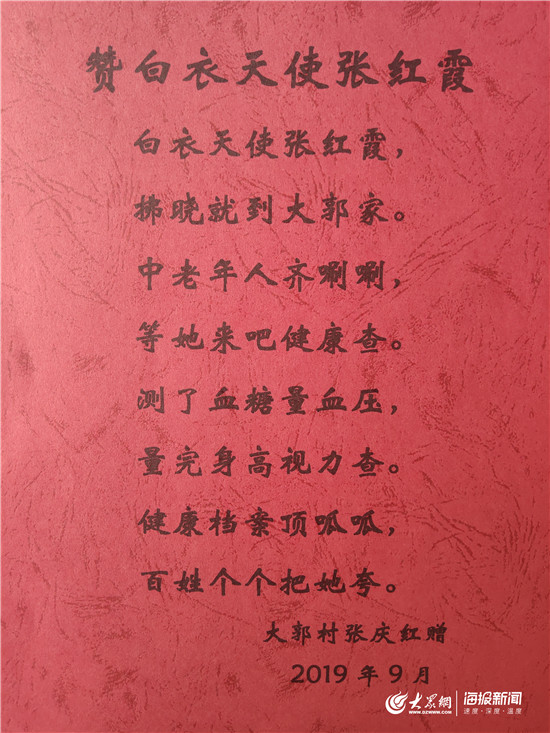 赞白衣天使张红霞
白衣天使张红霞，
拂晓就到大郭家。
中老年人齐唰唰，
等她来吧健康查。
测了血糖量血压，
量完身高视力查。
健康档案顶呱呱，
百姓个个把她夸。
大郭村张庆红赠
2019 年 9 月
大众網 海报新闻
WWW.DZWWW.COM 速度·深度·温度